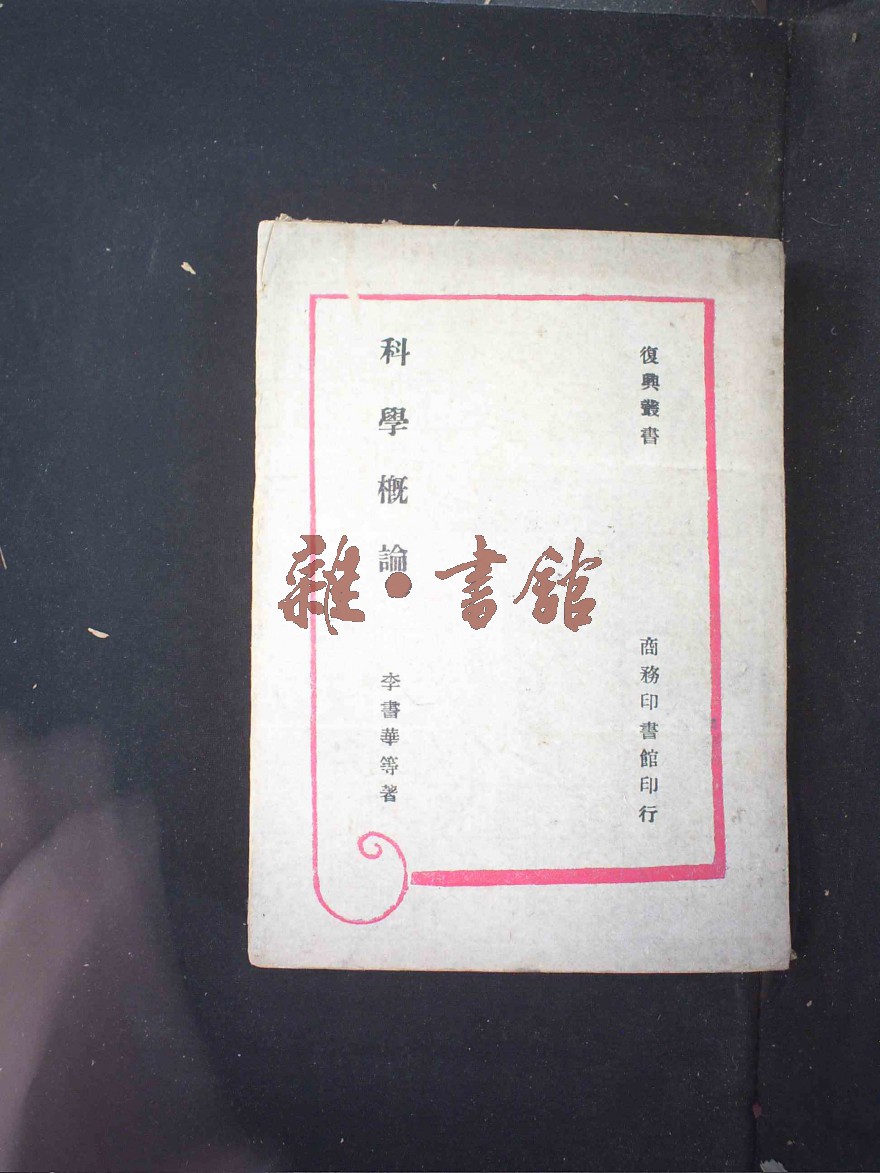 復興叢書
商務印書館印行
科學概論
李書華等著
雜•書館